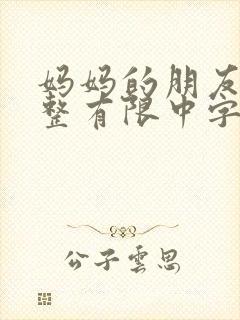 妈妈的朋友
整有限中字
公子雲思